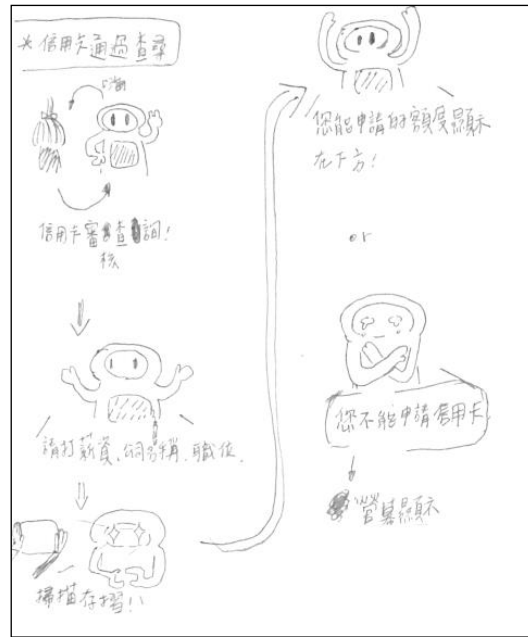 *信用卡通過查尋
信用卡審查詢!
核
請打薪資、公司名稱、職位
掃描存摺!!
您能申請的額度顯示
在下方!
or
您不能申請信用卡
螢幕顯示